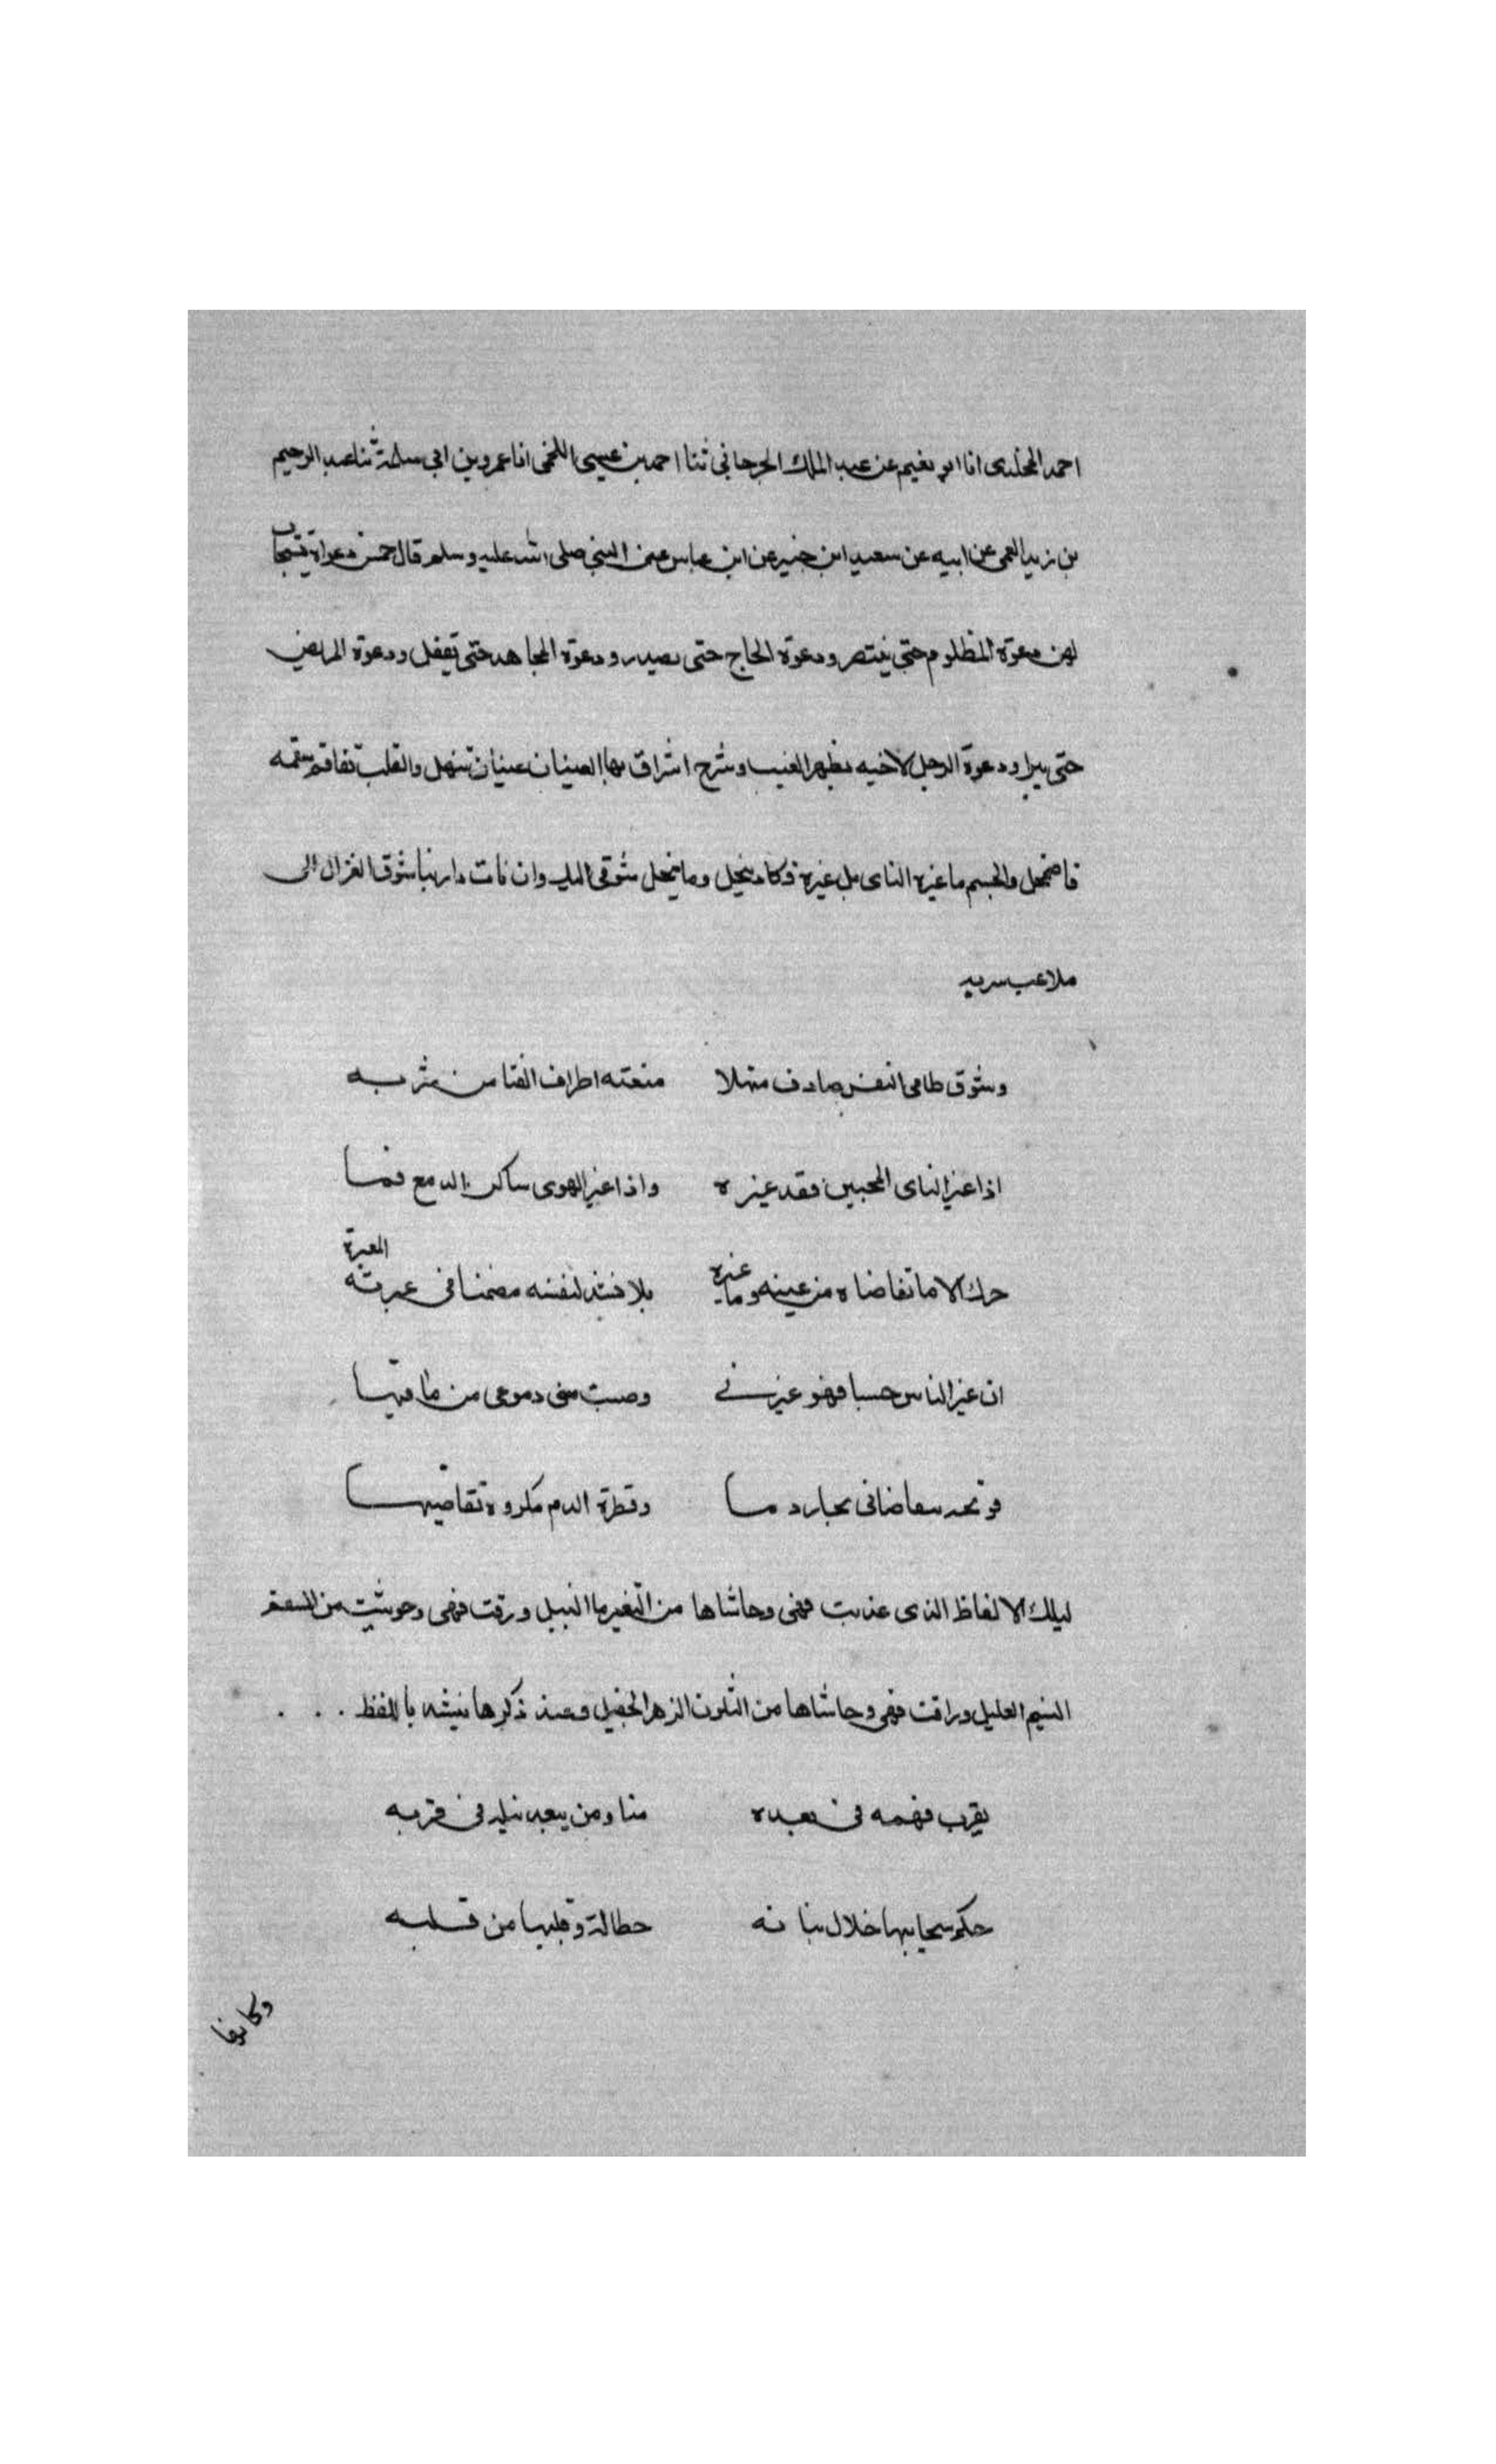 احمد المخلدى انا ابو نعيم عن عبد الملك الجرجاني ثنا احمد بن عيسى اللخمى انا عمرو بن ابى سلمة ثنا عبد الرحيم
بن زيد العمى عن ابيه عن سعيد ابن جبير عن ابن عباس عن النبي صلى الله عليه وسلم قال خمس دعواة يستجاب
لهن دعوة المظلوم حتى ينتصر ودعوة الحاج حتى يصدر ودعوة المجاهد حتى يقفل ودعوة المريض
حتى يبرا ودعوة الرجل لاخيه بظهر الغيب وشرح اشراق بها العينان عينان تنهل والقلب تفاقم سقمه
فاضمحل والجسم ما غيره الناى بل غيرة وكاد ينحل وما ينحل شوقى اليك وان نات دار بنا شوق الغزال الى
ملاعب سربه
وشوق ظامى النفس صادف منهلا منعته اطراف القنا من شربه
اذا غير الناى المحبين فقد غيره واذا غير الهوى ساكن الدمع فما
حرك الا ما تقاضاه من عينه وما غيره بلا فيند لنفسه مضمنا فى عبرته العبرة
ان غير الناس حسبا فهو غيرنى وصبت منى دموعى من ماقيها
دما وقطرة الدم مكروه تقاضيها
الالفاظ الذى عذبت فهى وحاشاها من التغير ما النيل ورقت فهى وحوشيت من السقم
النسيم العليل وراقت فهى وحاشاها من التلون الزهر الخضيل وعند ذكرها باللفظ . . .
يقرب فهمه فى بعده منا ومن يبعد نيله فى قربه
حكم سحابها خلال بنانه هطالة وقليبها من قلبه
وكانوا